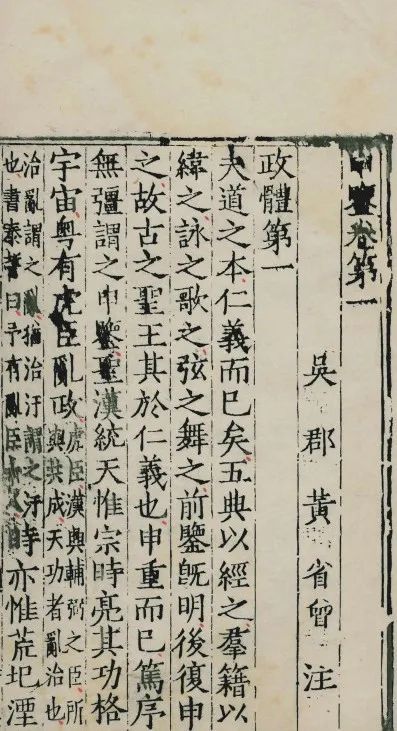 申鑒卷第一
吳郡黃省曾注
政體第一
夫道之本仁義而已矣五典以經之羣籍以
緯之詠之歌之弦之舞之前鑒既明後復申
之故古之聖王其於仁義也申重而已篤序
無彊謂之申鑒聖漢統天惟宗時亮其功格
宇宙粵有虎臣亂政虎臣漢興輔弼之臣所與共成天功者亂治也
治亂謂之亂猶治汙謂之汙也書泰誓曰予有亂臣十人時亦惟荒圮湮